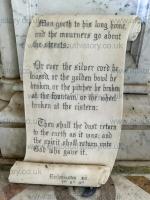 Man goeth to his long home,
and the mourners go about
the streets.
Or ever the silver cord be
loosed, or the golden bowl be
broken, or the pitcher be broken
at the fountain, or the wheel
broken at the cistern.
Then shall the dust return
to the earth as it was; and
the spirit shall return unto
God who gave it.
Ecclesiastes XII